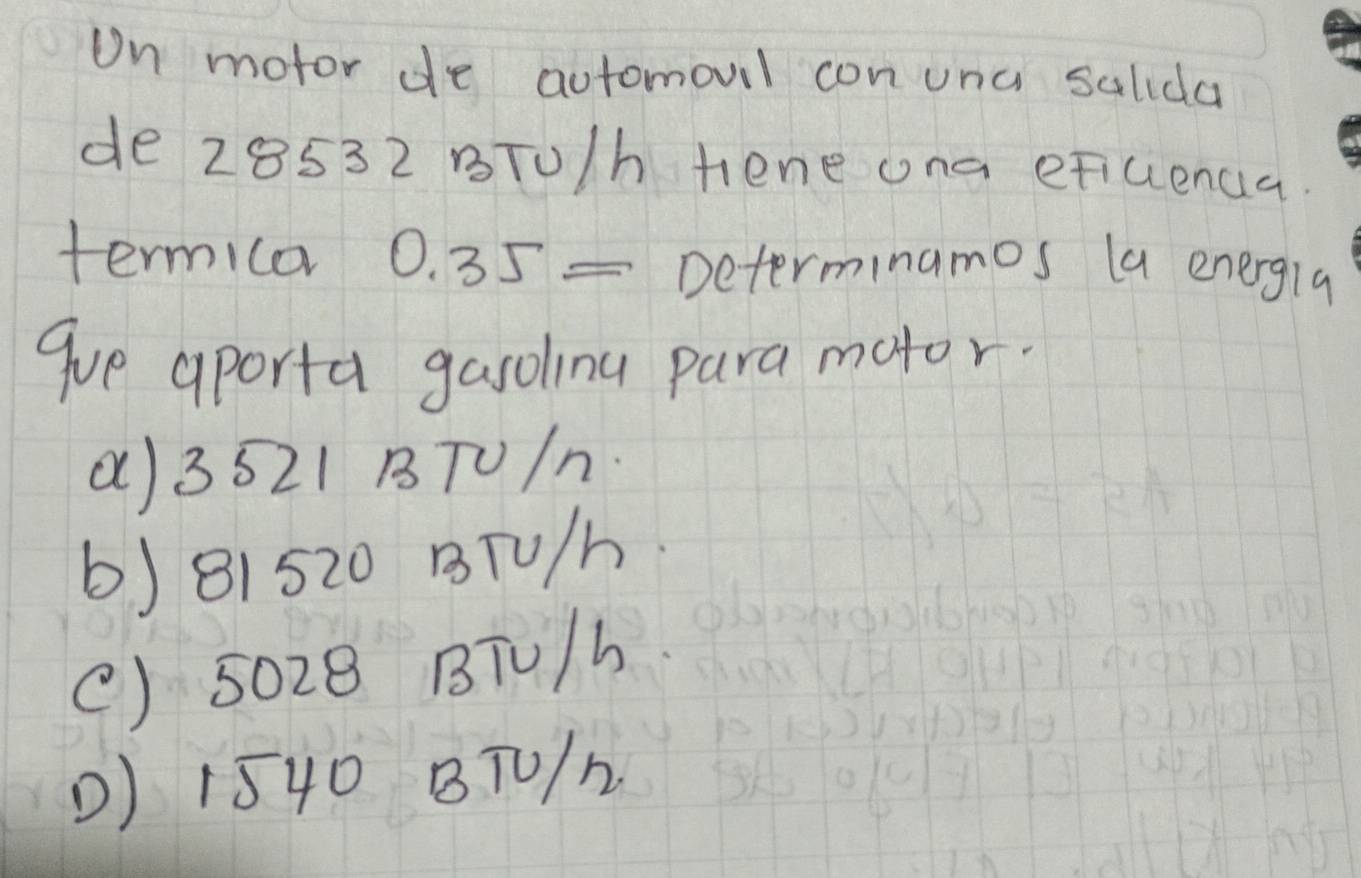 Un motor de automovil con una salida
de 28532 BTU/h tiene una eficiencia.
termica 0.35 = Determinamos la energia
que aporta gasolina para motor.
a) 3521 BTU/h.
b) 81520 BTU/h.
c) 5028 BTU/h.
D) 1540 BTU/h.